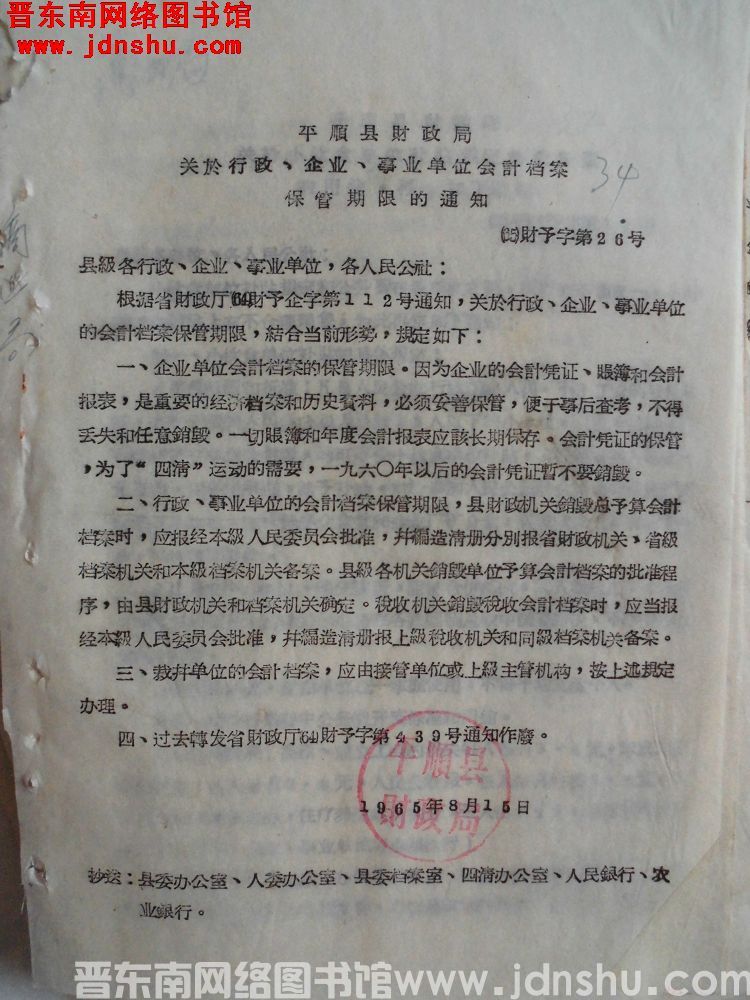 晋东南网络图书馆
www.jdnshu.com
平順县財政局
关於行政、企业、事业单位会計档案
34
保管期限的通知
(65)財予字第26号
县級各行政、企业、事业单位，各人民公社：
根据省財政厅(64)財予企字第112号通知，关於行政、企业、事业单位
的会計档案保管期限，結合当前形势，規定如下：
一、企业单位会計档案的保管期限。因为企业的会計凭证、賬簿和会計
报表，是重要的经济档案和历史資料，必须妥善保管，便于事后查考，不得
丢失和任意銷毁。一切賬簿和年度会計报表应該长期保存。会計凭证的保管
，为了“四清”运动的需要，一九六〇年以后的会計凭证暫不要銷毁。
二、行政、事业单位的会計档案保管期限，县財政机关銷毁总予算会計
档案时，应报经本級人民委员会批准，幷編造清册分别报省財政机关、省級
档案机关和本級档案机关备案。县級各机关銷毁单位予算会計档案的批准程
序，由县財政机关和档案机关确定。稅收机关銷毁稅收会計档案时，应当报
经本級人民委员会批准，幷編造清册报上級稅收机关和同級档案机关备案。
三、裁幷单位的会計档案，应由接管单位或上級主管机构，按上述規定
办理。
四、过去轉发省財政厅(64)財予字第439号通知作廢。
平順县
財政局
1965年8月15日
抄送：县委办公室、人委办公室、县委档案室、四清办公室、人民銀行、农
业銀行。
晋东南网络图书馆www.jdnshu.com